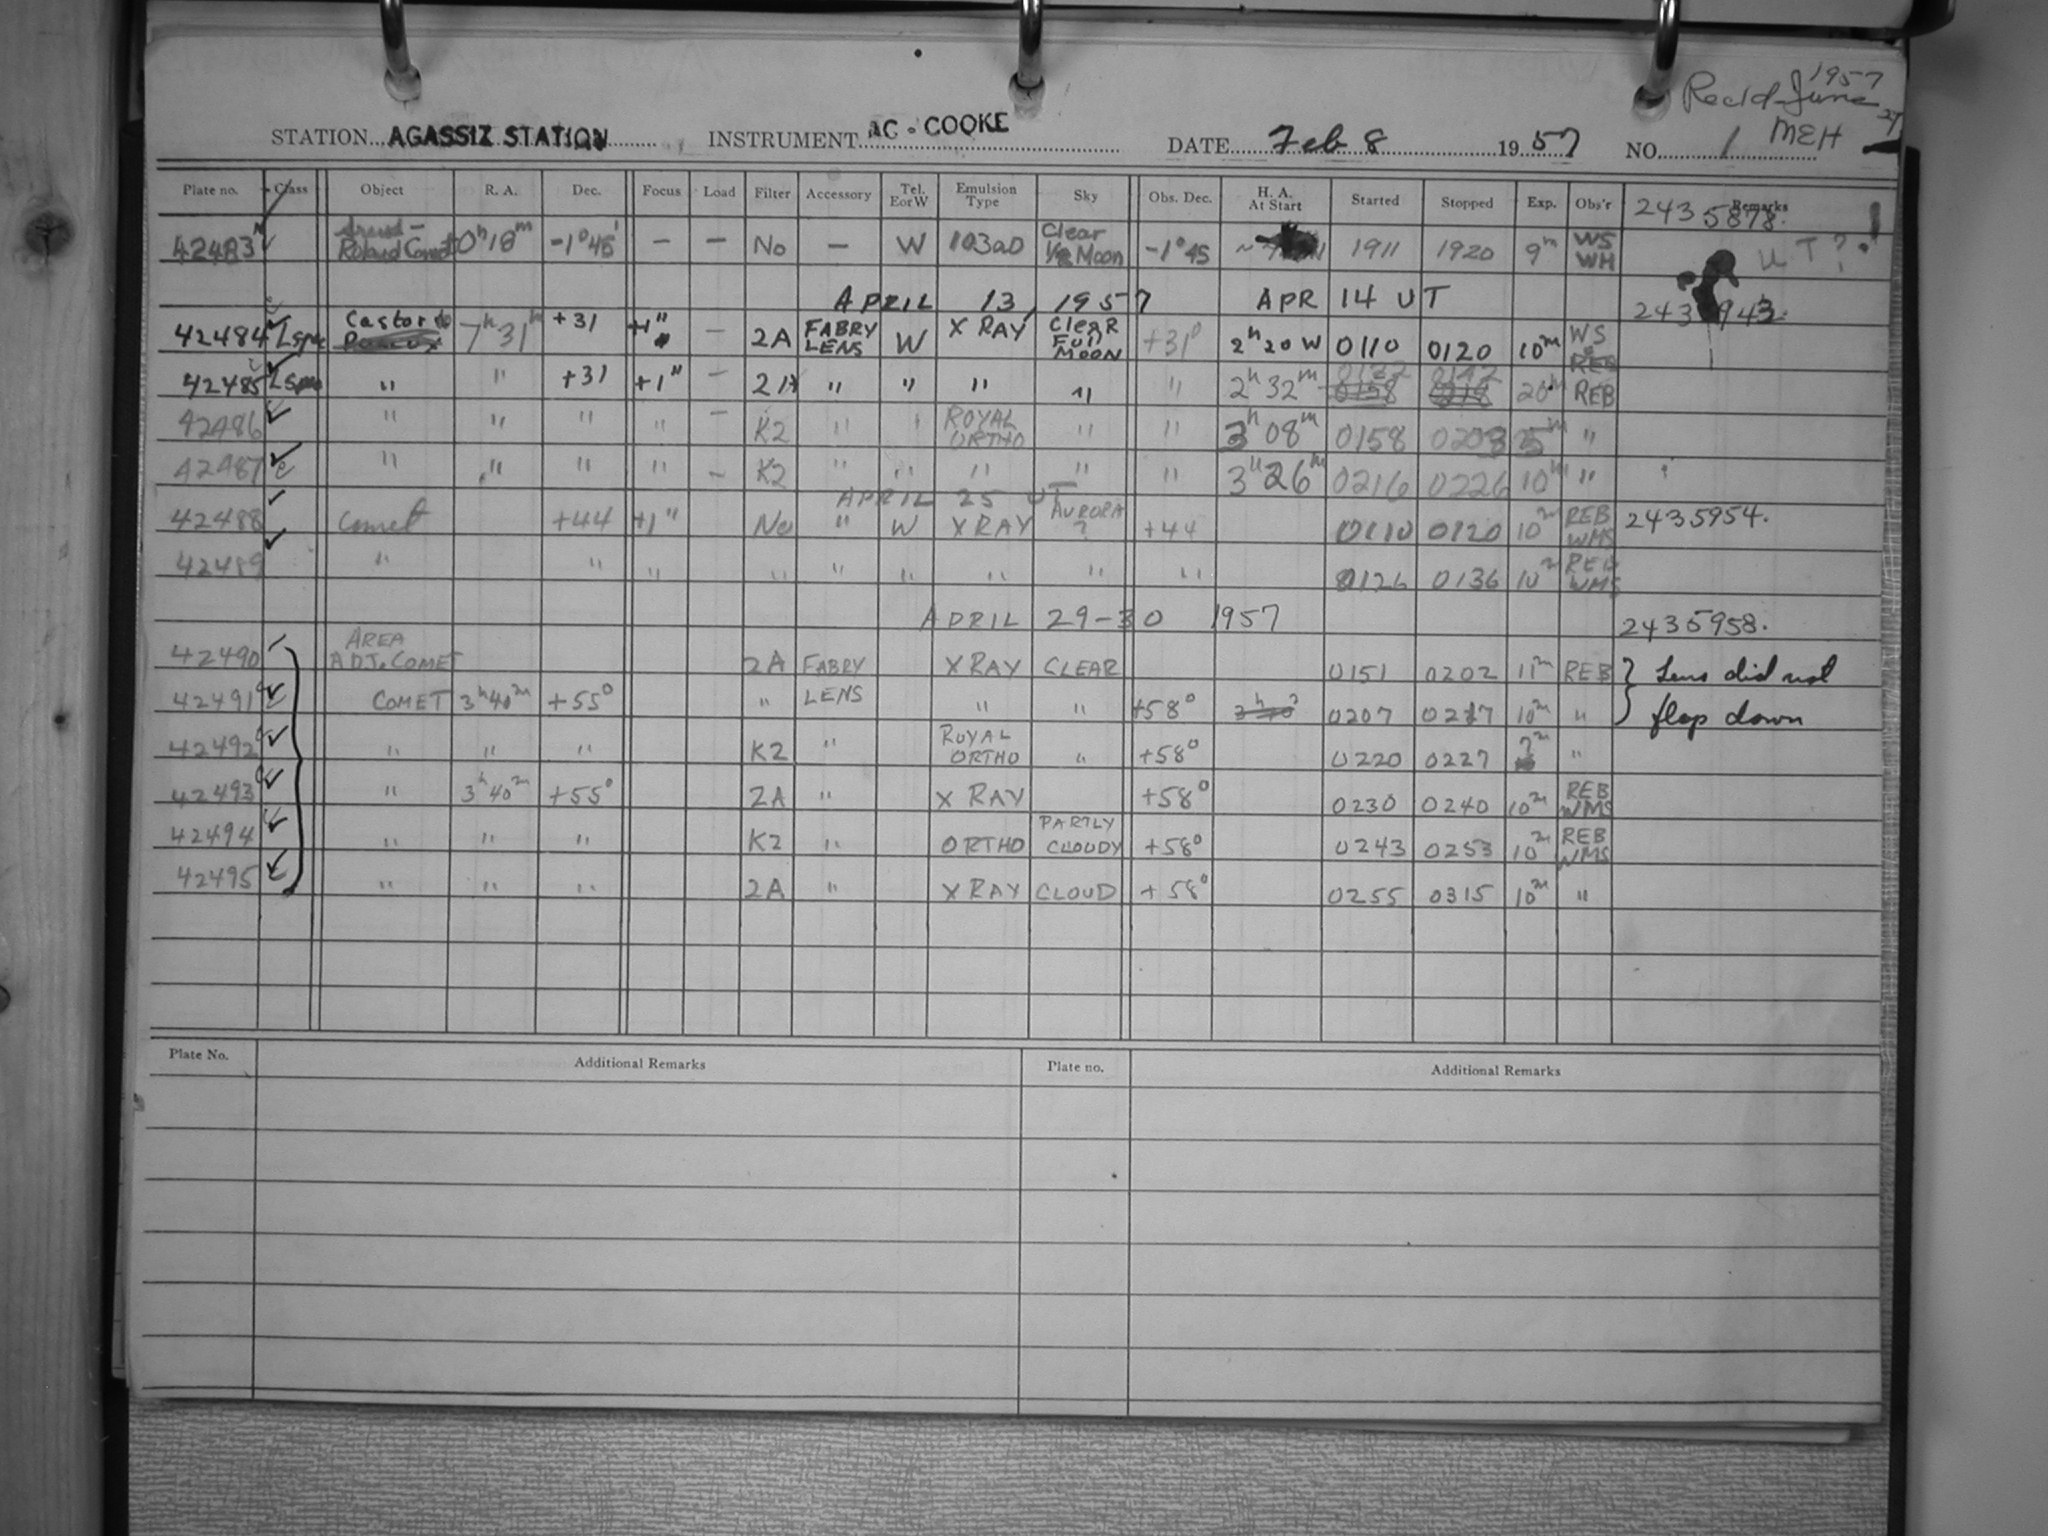 1957
Rec'd June 27
MEH
STATION AGASSIZ STATION INSTRUMENT AC - COOKE DATE Feb 8 1957 NO. 1
Plate no. Class Object R. A. Dec. Focus Load Filter Accessory Tel. E or W Emulsion Type Sky Obs. Dec. H. A. At Start Started Stopped Exp. Obs'r Remarks
2435878.
42483 Roland Comet 0h 18m -1° 45' - - No - W 103a0 Clear 1/2 Moon -1° 45 1911 1920 9m WS WH UT?
APRIL 13, 1957 APR 14 UT
42484 Castor 7h 31 +31 +1" - 2A FABRY LENS W X RAY CLEAR FULL MOON +31° 2h 20 W 0110 0120 10m WS REB
42485 " " +31 +1" - 2A " " " " " 2h 32m 20m REB
42486 " " " " - K2 " " ROYAL ORTHO " " 3h 08m 0158 0203 5m "
42487 c " " " " - K2 " " " " " 3h 26m 0216 0226 10m "
APRIL 25 UT
42488 Comet +44 +1" No " W X RAY AURORA ? +44 0110 0120 10m REB WMS 2435954.
42489 " " " " " " " " " 0126 0136 10m REB WMS
APRIL 29-30 1957 2435958.
42490 AREA ADJ. COMET 2A FABRY LENS X RAY CLEAR 0151 0202 11m REB } Lens did not
42491 COMET 3h 40m +55° " " " +58° 0207 0217 10m " } flop down
42492 " " " K2 " ROYAL ORTHO " +58° 0220 0227 7m "
42493 " 3h 40m +55° 2A " X RAY +58° 0230 0240 10m REB WMS
42494 " " " K2 " ORTHO PARTLY CLOUDY +58° 0243 0253 10m REB WMS
42495 " " " 2A " X RAY CLOUD +58° 0255 0315 10m "
Plate No. Additional Remarks Plate no. Additional Remarks